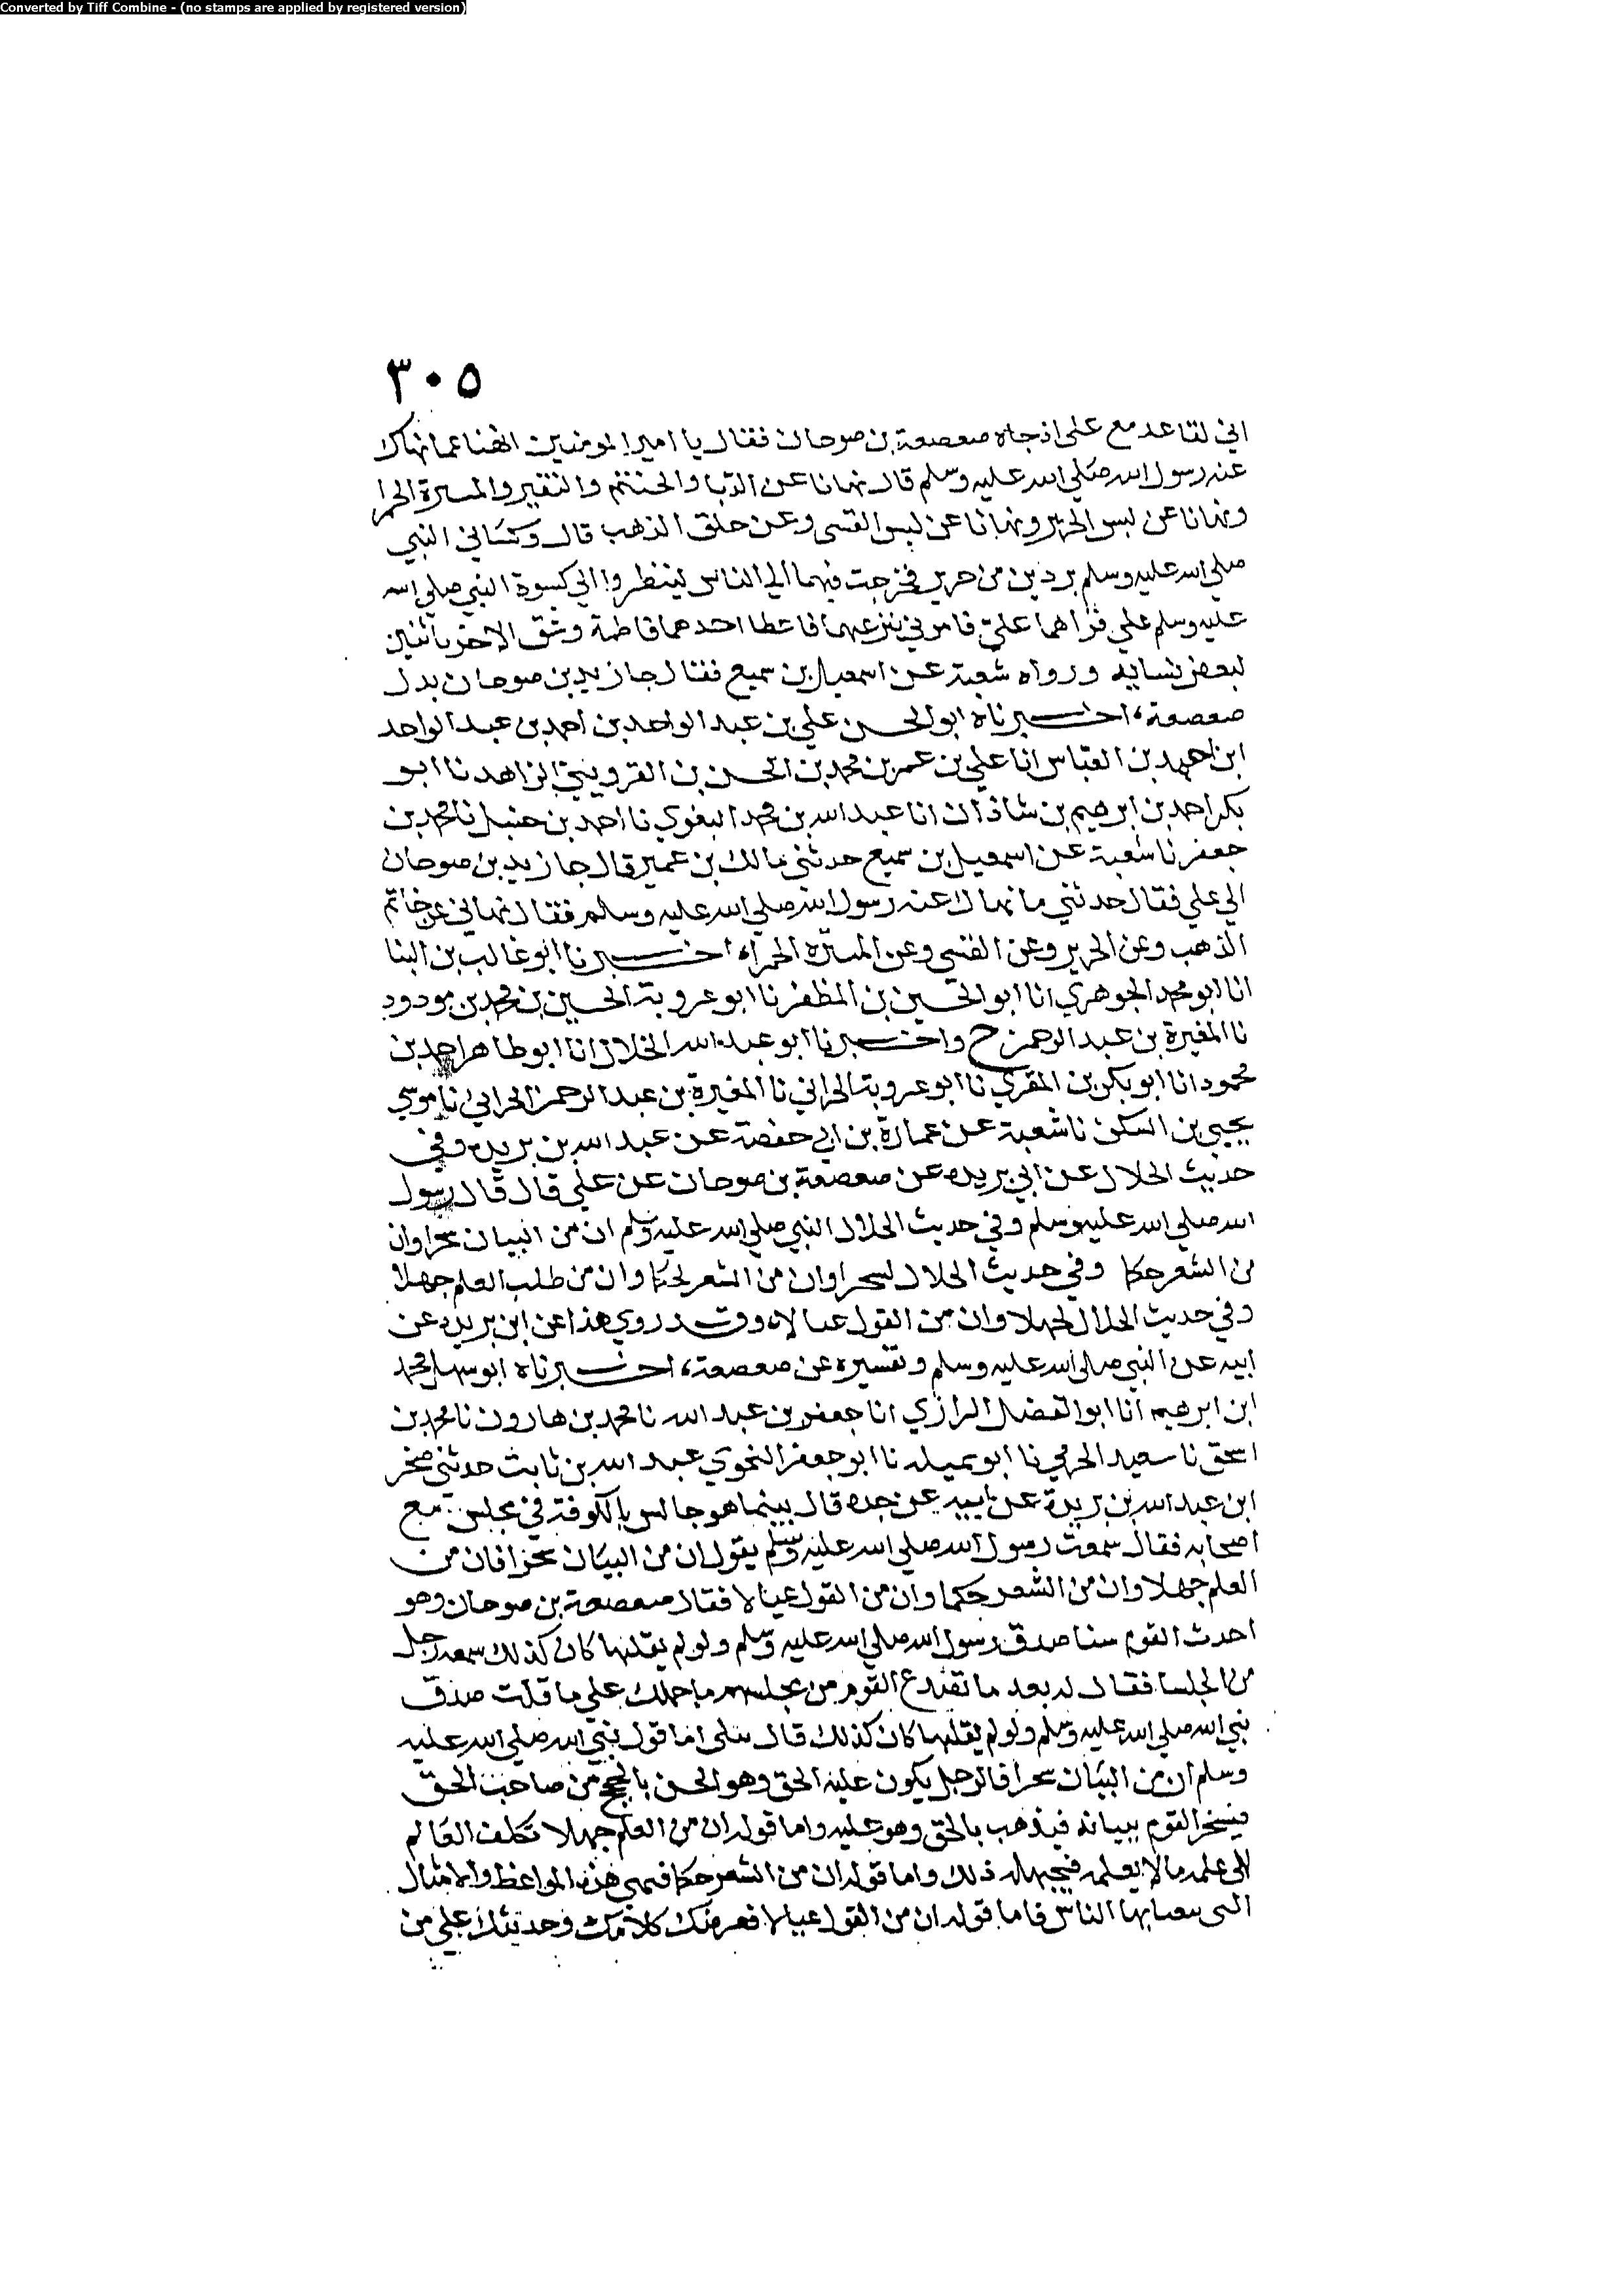 Converted by Tiff Combine - (no stamps are applied by registered version)
٣٠٥
اني لقاعد مع علي اذ جاه صعصعة بن صوحان فقال يا امير المومنين انهنا عما نهاك
عنه رسول الله صلي الله عليه وسلم قال نهانا عن الدبا والحنتم والنقير والميثرة الحمرا
ونهانا عن لبس الحرير ونهانا عن لبس القسي وعن حلق الذهب قال وكساني النبي
صلي الله عليه وسلم بردين من حرير فخرجت فيهما الي الناس لينظروا الي كسوة النبي صلي الله
عليه وسلم علي فراهما علي فامرني بنزعهما فاعطا احدهما فاطمة وشق الاخر باثنين
لبعض نسايه ورواه شعبة عن اسمعيل بن سميع فقال جا زيد بن صوحان بدل
صعصعة، اخبرناه ابو الحسن علي بن عبد الواحد بن احمد بن عبد الواحد
ابن احمد بن العباس انا علي بن عمر بن محمد بن الحسن بن القزويني الزاهد نا ابو
بكر احمد بن ابرهيم بن شاذان انا عبد الله بن محمد البغوي نا احمد بن حنبل نا محمد بن
جعفر نا شعبة عن اسمعيل بن سميع حدثني مالك بن عمير قال جا زيد بن صوحان
الي علي فقال حدثني ما نهاك عنه رسول الله صلي الله عليه وسلم فقال نهاني عن خاتم
الذهب وعن الحرير وعن القسي وعن الميثرة الحمراء اخبرنا ابو غالب بن البنا
انا ابو محمد الجوهري انا ابو الحسين بن المظفر نا ابو عروبة الحسين بن محمد بن مودود
نا المغيرة بن عبد الرحمن ح واخبرنا ابو عبد الله الخلال انا ابو طاهر احمد بن
محمود انا ابو بكر بن المقري نا ابو عروبة الحراني نا المغيرة بن عبد الرحمن الحراني نا موسي
يحيي بن السكن نا شعبة عن عمارة بن ابي حفصة عن عبد الله بن بريدة وفي
حديث الخلال عن ابي بريده عن صعصعة بن صوحان عن علي قال قال رسول
الله صلي الله عليه وسلم وفي حديث الخلال النبي صلي الله عليه وسلم ان من البيان سحرا وان
من الشعر حكما وفي حديث الخلال لسحرا وان من الشعر لحكما وان من طلب العلم جهلا
وفي حديث الخلال لجهلا وان من القول عيالا، وقد روي هذا عن ابن بريده عن
ابيه عن النبي صلي الله عليه وسلم وتفسيره عن صعصعة، اخبرناه ابو سهل محمد
ابن ابرهيم انا ابو الفضل الرازي انا جعفر بن عبد الله نا محمد بن هارون نا محمد بن
اسحق نا سعيد الجرمي نا ابو تميله نا ابو جعفر النحوي عبد الله بن ثابت حدثني صخر
ابن عبد الله بن بريدة عن ابيه عن جده قال بينما هو جالس بالكوفة في مجلس مع
اصحابه فقال سمعت رسول الله صلي الله عليه وسلم يقول ان من البيان سحرا فان من
العلم جهلا وان من الشعر حكما وان من القول عيالا فقال صعصعة بن صوحان وهو
احدث القوم سنا صدق رسول الله صلي الله عليه وسلم ولو لم يقلها كان كذلك سمعه رجل
من الجلسا فقال له بعد ما تصدع القوم من مجلسهم ما حملك علي ما قلت صدق
نبي الله صلي الله عليه وسلم ولو لم يقلها كان كذلك قال بلي اما قول نبي الله صلي الله عليه
وسلم ان من البيان سحرا فالرجل يكون عليه الحق وهو الحن بالحجج من صاحب الحق
فيسخر القوم ببيانه فيذهب بالحق وهو عليه واما قوله ان من العلم جهلا تكلف العالم
الي علمه ما لا يعلمه فيجهله ذلك واما قوله ان من الشعر حكما فهي هذه المواعظ والامثال
التي بها الناس فاما قوله ان من القول عيالا فعرضك كلامك وحديثك علي من